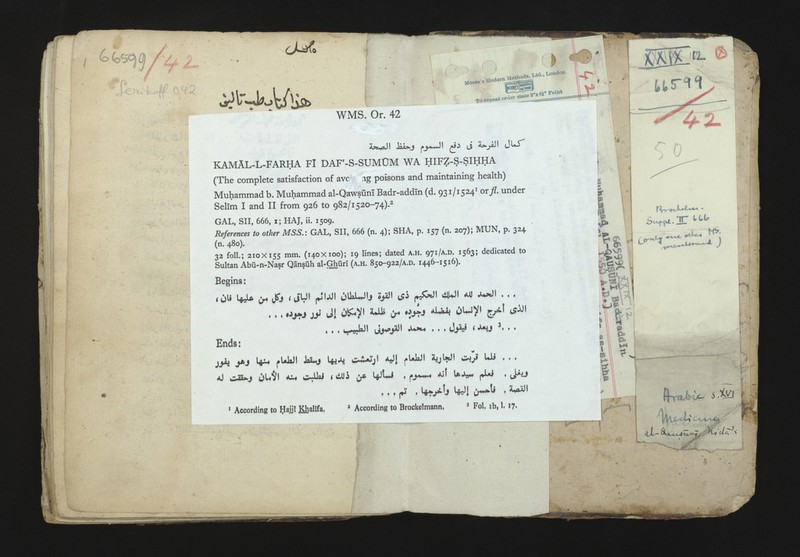 66599/42
هذا كتاب طب تاليف
WMS. Or. 42
كمال الفرحة فى دفع السموم وحفظ الصحة
KAMĀL-L-FARḤA FĪ DAF‘-S-SUMŪM WA ḤIFẒ-Ṣ-ṢIḤḤA
(The complete satisfaction of avo ng poisons and maintaining health)
Muḥammad b. Muḥammad al-Qawṣūnī Badr-addīn (d. 931/1524¹ or fl. under
Selīm I and II from 926 to 982/1520–74).²
GAL, SII, 666, 1; HAJ, ii. 1509.
References to other MSS.: GAL, SII, 666 (n. 4); SHA, p. 157 (n. 207); MUN, p. 324
(n. 480).
32 foll.; 210×155 mm. (140×100); 19 lines; dated A.H. 971/A.D. 1563; dedicated to
Sultan Abū-n-Naṣr Qānṣūh al-Ghūrī (A.H. 850–922/A.D. 1446–1516).
Begins:
... الحمد لله الملك الحكيم ذى القوة والسلطان الدائم الباقى، وكل من عليها فان،
الذى أخرج الإنسان بفضله وجُوده من ظلمة الإمكان إلى نور وجوده ...
...³ وبعد، فيقول ... محمد القوصونى الطبيب ...
Ends:
... فلما قرّبت الجارية الطعام إليه ارتعشت يديها وسقط الطعام منها وهو يفور
ويغلى. فعلم سيدها أنه مسموم. فسألها عن ذلك، فطلبت منه الأمان وحققت له
القصة. فأحسن إليها وأخرجها. تم ...
¹ According to Ḥajjī Khalīfa. ² According to Brockelmann. ³ Fol. 1b, l. 17.
Moore's Modern Methods, Ltd., London
To repeat order state 5"x 6½" Faint
42
Muhammad AL-QAUSŪNĪ Badraddīn,
66599
XXIX 12
66599
42
50
Brockelm.
Suppl. II 666
(only one other MS.
mentioned)
Arabic s. XVI
Medicine